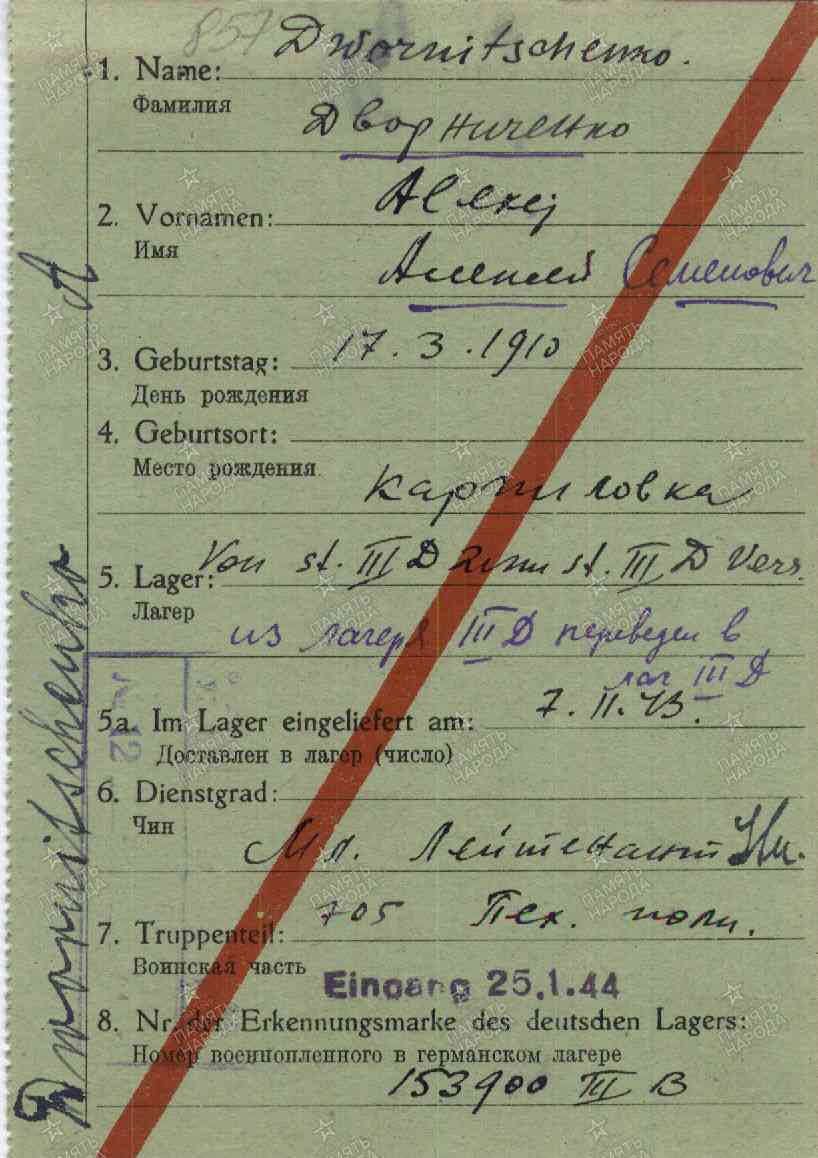 857
Dwornitschenko.
1. Name:
Фамилия
Дворниченко
2. Vornamen: Alexej
Имя
Алексей Семенович
3. Geburtstag: 17.3.1910
День рождения
4. Geburtsort:
Место рождения
Карпиловка
5. Lager: Von st. III D zum st. III D Vers.
Лагер
из лагеря III D переведен в
лаг III D
5a. Im Lager eingeliefert am: 7.II.43.
Доставлен в лагер (число)
6. Dienstgrad:
Чин
Мл. Лейтенант
7. Truppenteil: 705 Пех. полк.
Воинская часть
Eingang 25.1.44
8. Nr. der Erkennungsmarke des deutschen Lagers:
Номер военнопленного в германском лагере
153900 III B
Dwornitschenko A
12
ПАМЯТЬ НАРОДА